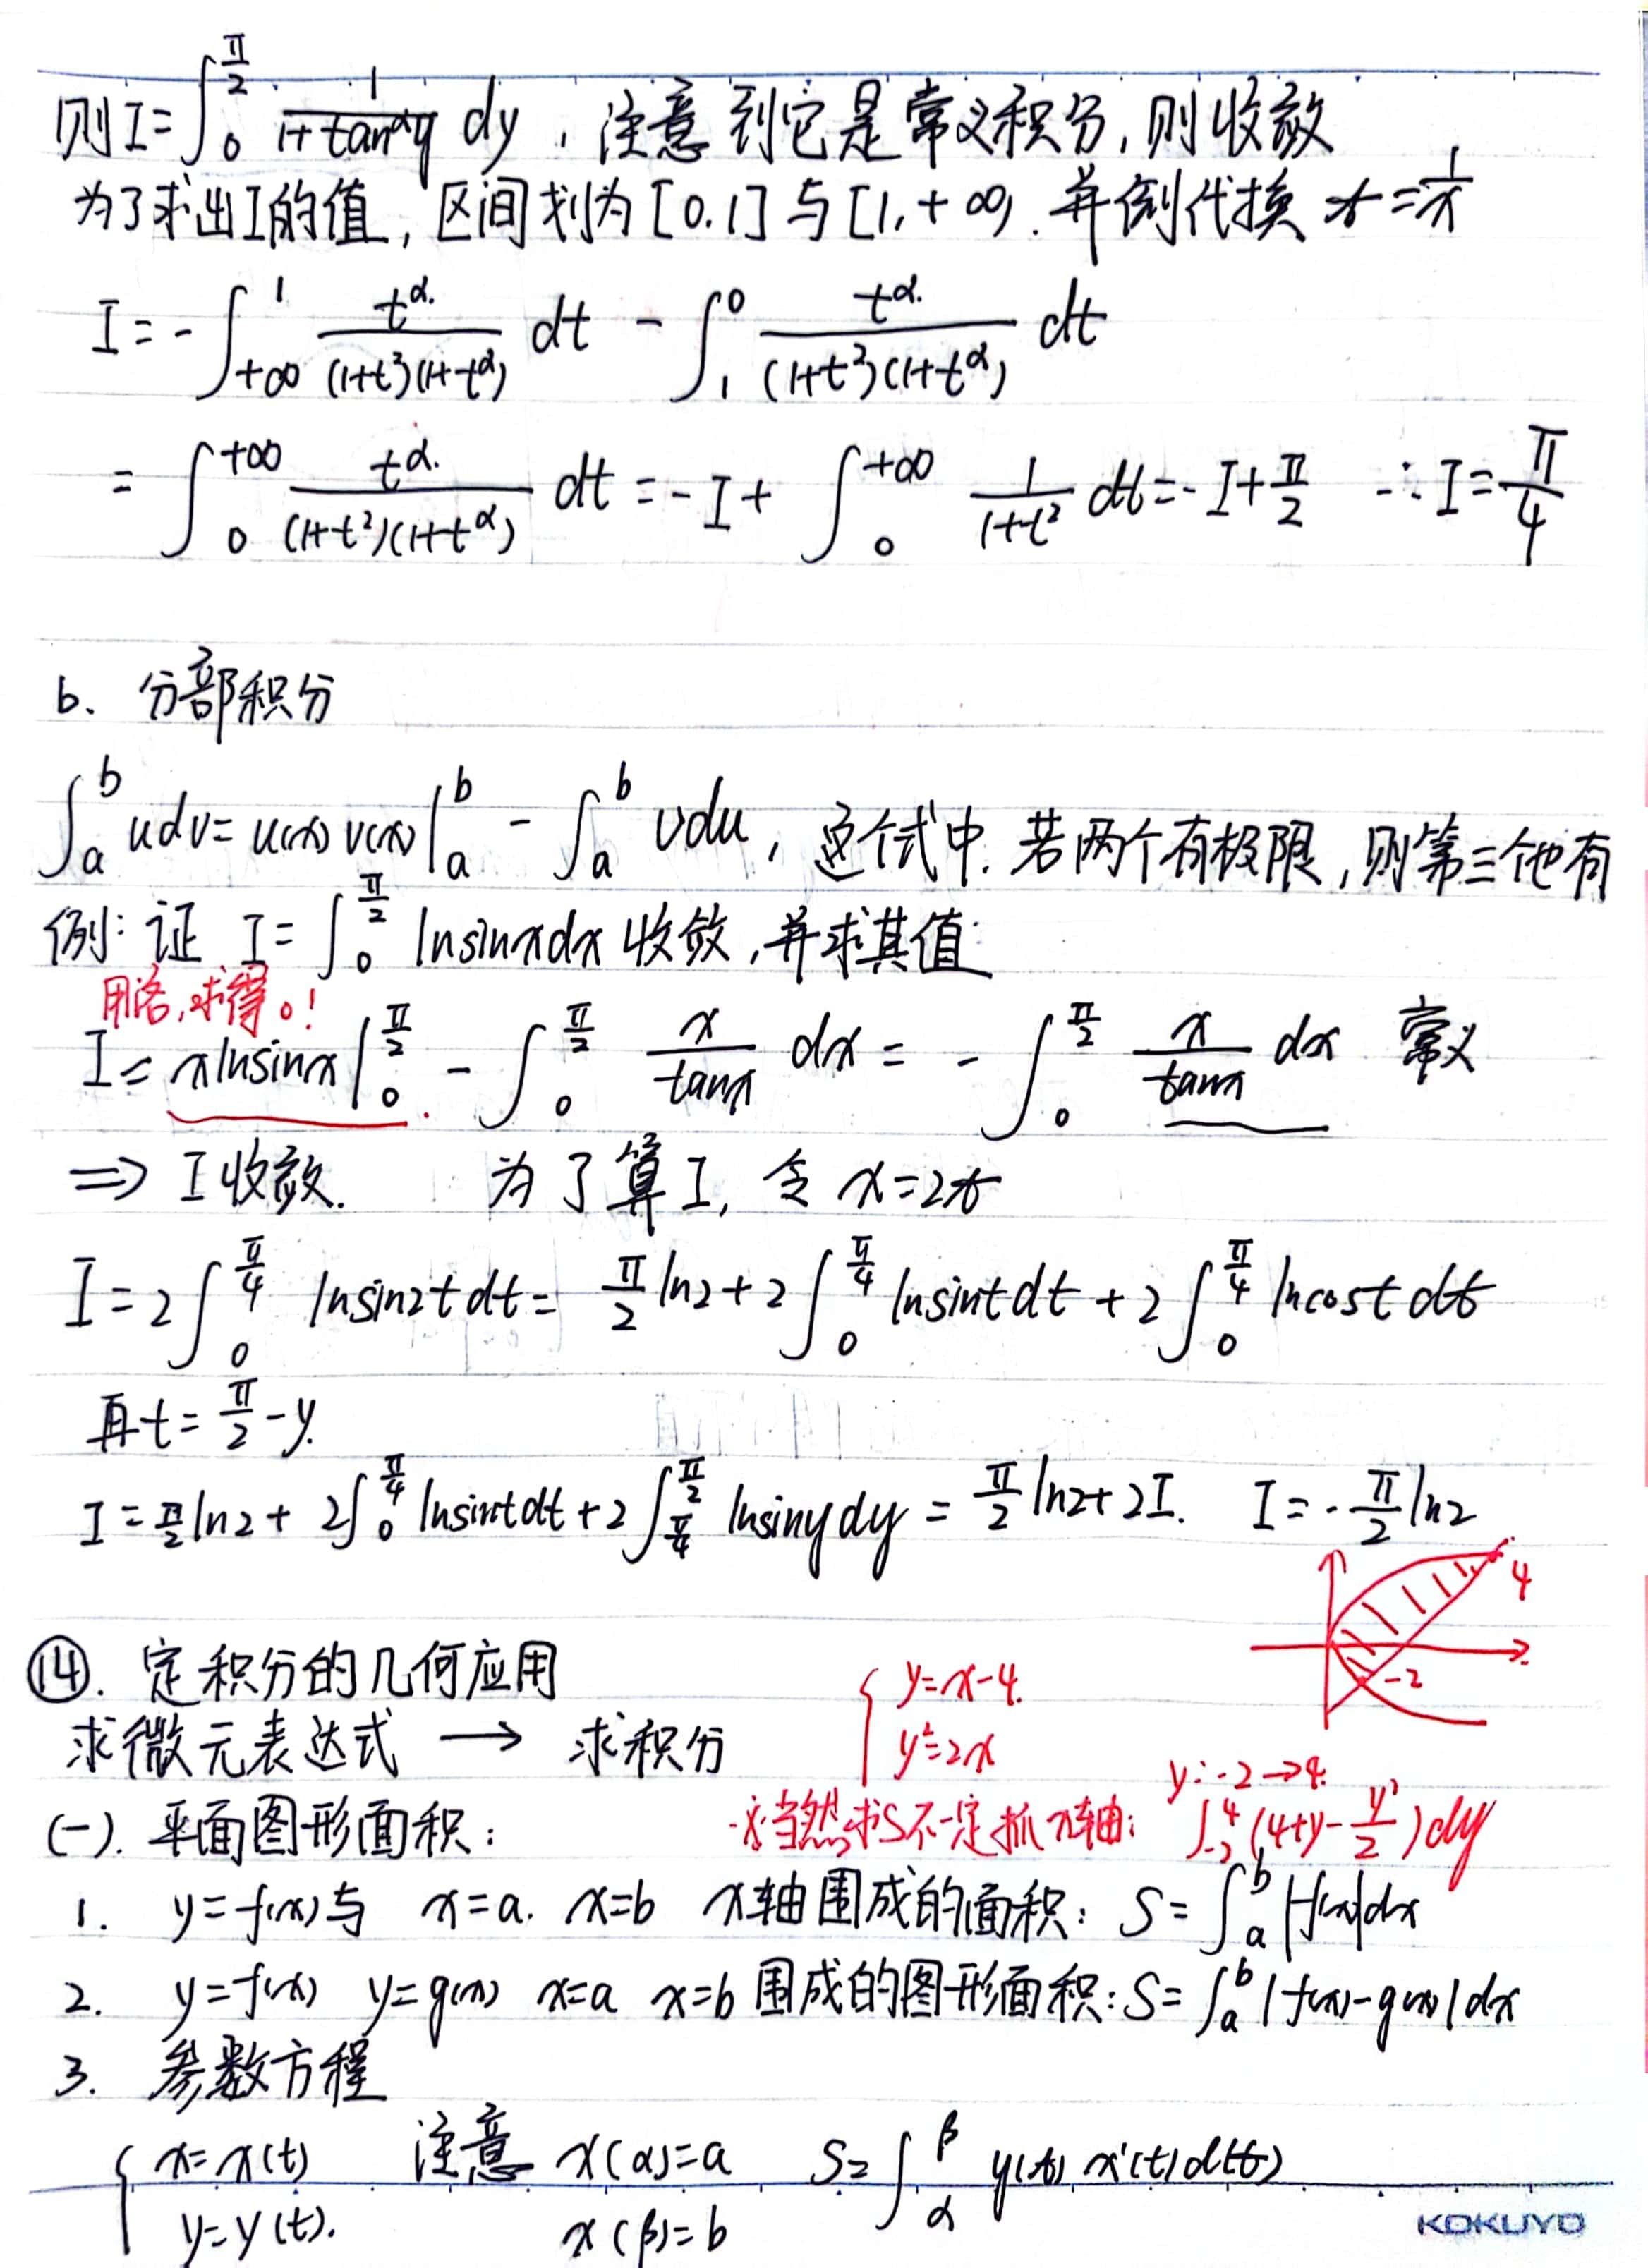 则I=∫₀^{π/2} 1/(1+tan^α y) dy，注意到它是常义积分,则收敛
为了求出I的值，区间划为[0,1]与[1,+∞)．并倒代换 t=1/x
I=-∫_{+∞}^{1} t^α/((1+t²)(1+t^α)) dt - ∫_1^0 t^α/((1+t²)(1+t^α)) dt
=∫_0^{+∞} t^α/((1+t²)(1+t^α)) dt=-I+∫_0^{+∞} 1/(1+t²) dt=-I+π/2 ∴I=π/4
b. 分部积分
∫_a^b udv=u(x)v(x)|_a^b - ∫_a^b vdu，这个式中.若两个有极限,则第三个也有
例:证 I=∫_0^{π/2} lnsinxdx 收敛,并求其值
用洛,求得0!
I=xlnsinx|_0^{π/2} - ∫_0^{π/2} x/tanx dx = -∫_0^{π/2} x/tanx dx 常义
⇒ I收敛. 为了算I, 令 x=2t
I=2∫_0^{π/4} lnsin2tdt= π/2 ln2+2∫_0^{π/4} lnsintdt+2∫_0^{π/4} lncostdt
再t=π/2-y.
I=π/2 ln2+2∫_0^{π/4} lnsintdt+2∫_{π/4}^{π/2} lnsinydy=π/2 ln2+2I. I=-π/2 ln2
4
-2
⑭. 定积分的几何应用
y=x-4.
y²=2x
求微元表达式 → 求积分
y:-2→4.
(一). 平面图形面积：
当然,求S不一定抓x轴: ∫_{-2}^4 (4+y-y²/2)dy
1. y=f(x)与 x=a. x=b x轴围成的面积：S=∫_a^b |f(x)|dx
2. y=f(x) y=g(x) x=a x=b 围成的图形面积:S=∫_a^b |f(x)-g(x)|dx
3. 参数方程
x=x(t) 注意 x(α)=a S=∫_α^β y(t)x'(t)d(t)
y=y(t). x(β)=b
KOKUYO